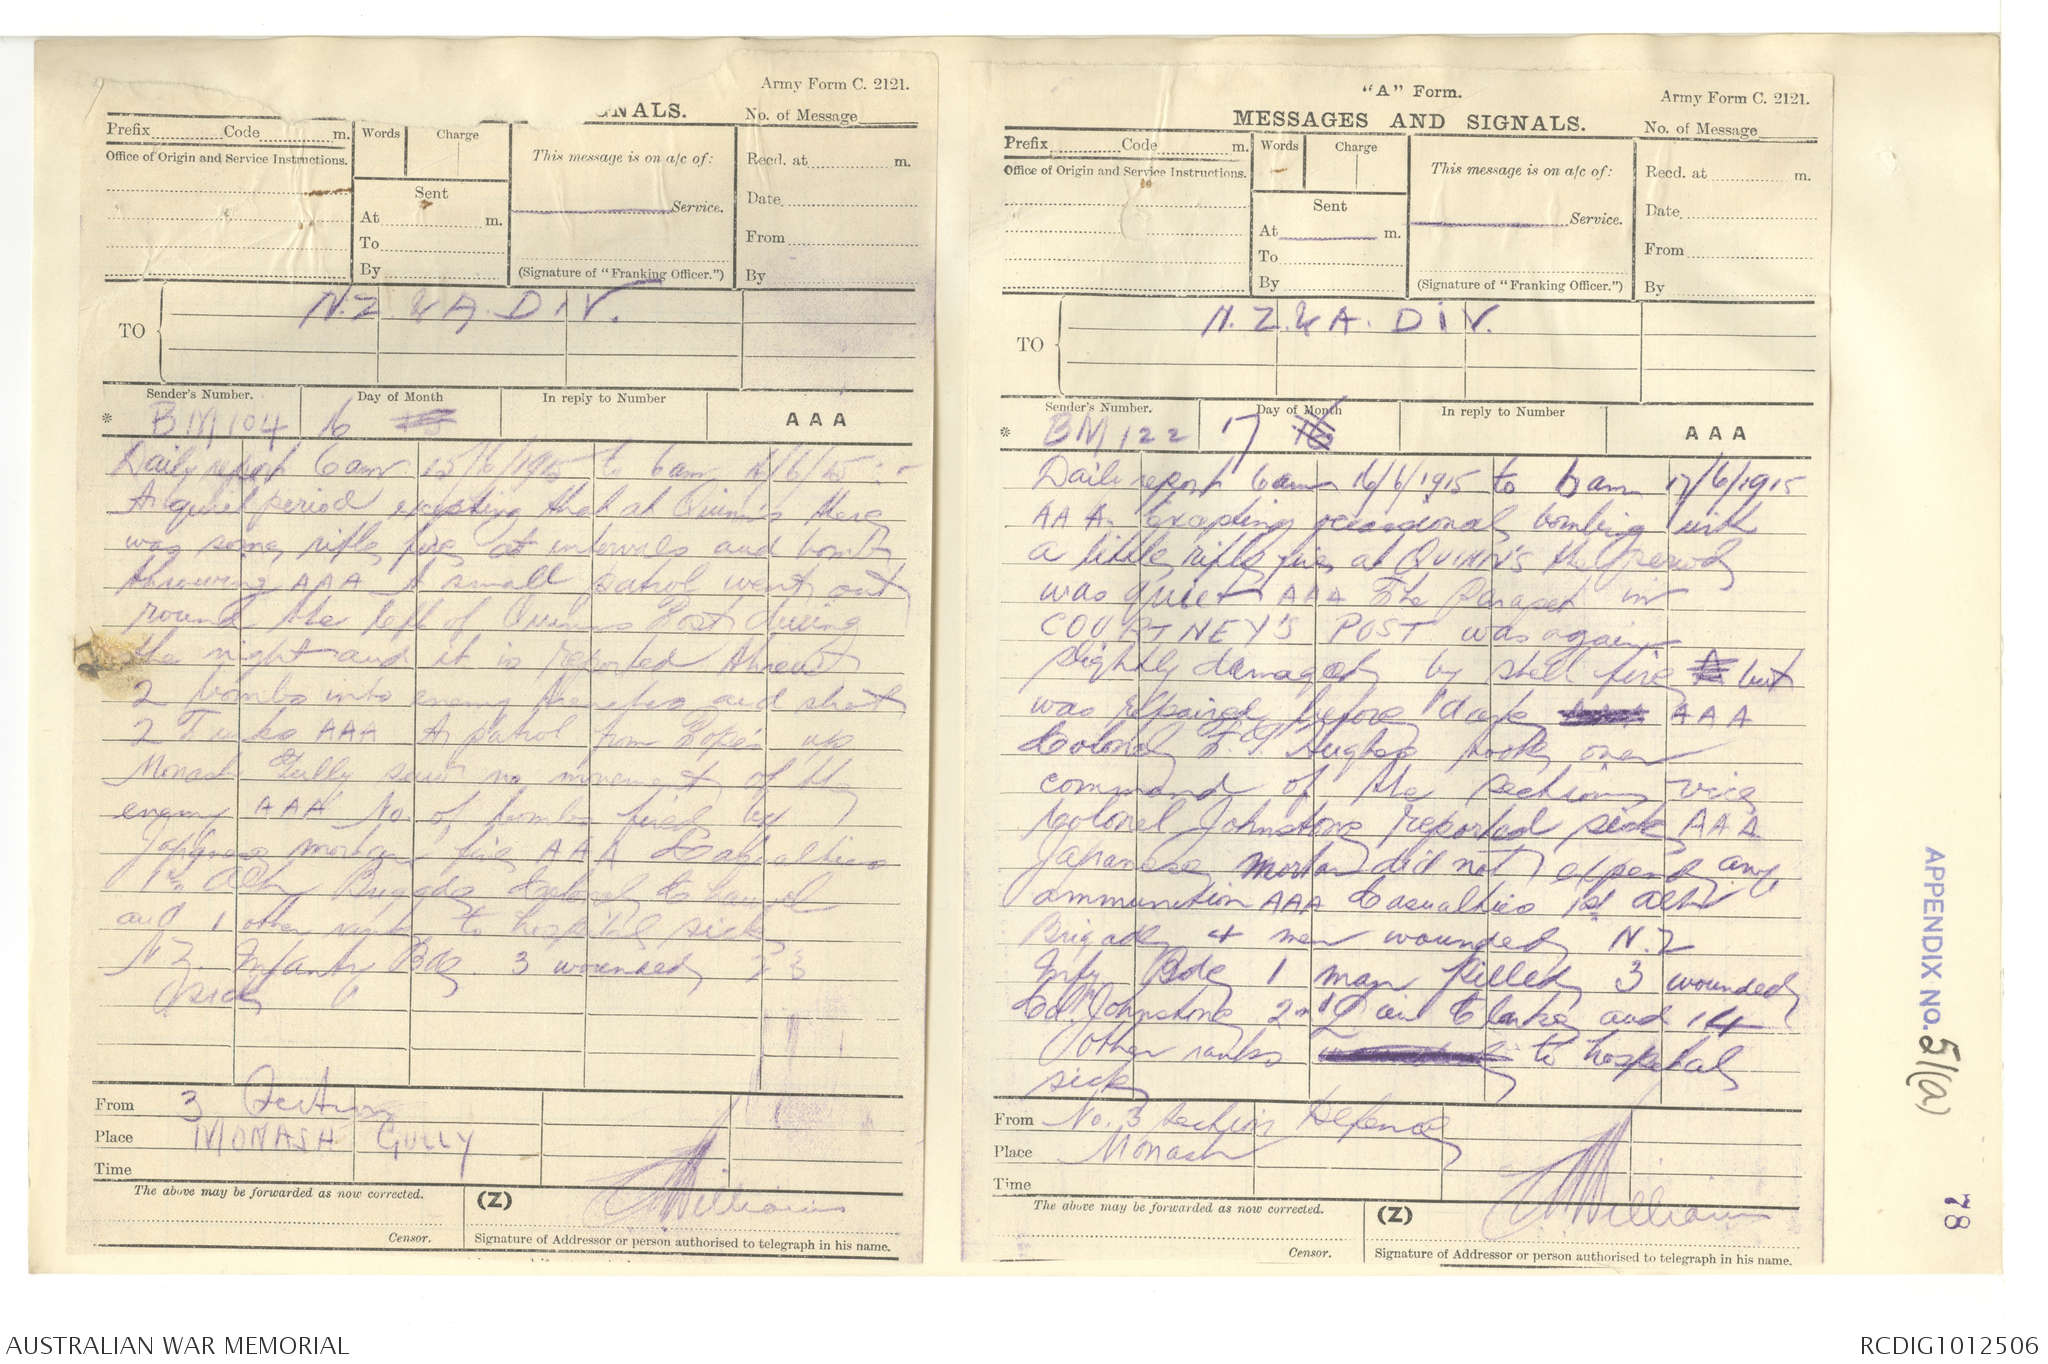 Army Form C. 2121.
GNALS.
No. of Message
Prefix Code m.
Words Charge
This message is on a/c of:
Recd. at m.
Office of Origin and Service Instructions.
Sent
At m.
Service.
Date
To
From
By
(Signature of "Franking Officer.")
By
TO
N.Z. & A. DIV.
Sender's Number.
Day of Month
In reply to Number
AAA
* BM 104
16
Daily report 6 am 15/6/1915 to 6 am 16/6/15 :-
A quiet period excepting that at Quinn's there
was some rifle fire at intervals and bomb
throwing AAA A small patrol went out
round the left of Quinns Post during
the night and it is reported threw
2 bombs into enemy trenches and shot
2 Turks AAA A patrol from Pope's up
Monash Gully saw no movement of the
enemy AAA No of bombs fired by
Japanese mortar five AAA Casualties
1st ALH Brigade Colonel Chauvel
and 1 other rank to hospital sick
N Z. Infantry Bde. 3 wounded
sick
From 3 Section
Place MONASH GULLY
Time
The above may be forwarded as now corrected.
(Z)
Williams
Censor.
Signature of Addressor or person authorised to telegraph in his name.
"A" Form.
Army Form C. 2121.
MESSAGES AND SIGNALS.
No. of Message
Prefix Code m.
Words Charge
This message is on a/c of:
Recd. at m.
Office of Origin and Service Instructions.
Sent
At m.
Service.
Date
To
From
By
(Signature of "Franking Officer.")
By
TO
N. Z. & A. DIV.
Sender's Number.
Day of Month
In reply to Number
AAA
* BM 122
17
Daily report 6 am 16/6/1915 to 6 am 17/6/1915
AAA. Excepting occasional bombing with
a little rifle fire at QUINN'S the period
was quiet AAA The Parapet in
COURTNEY'S POST was again
slightly damaged by shell fire but
was repaired before dark AAA
Colonel F. G. Hughes took over
command of the section vice
Colonel Johnstone reported sick AAA
Japanese mortar did not expend any
ammunition AAA Casualties 1st ALH
Brigade 4 men wounded N.Z
Infy Bde 1 man killed 3 wounded
Col. Johnstone 2nd Clarke and 14
other ranks to hospital
sick
From No. 3 Section Defence
Place Monash
Time
The above may be forwarded as now corrected.
(Z)
Williams
Censor.
Signature of Addressor or person authorised to telegraph in his name.
APPENDIX NO. 51(a)
78
AUSTRALIAN WAR MEMORIAL
RCDIG1012506